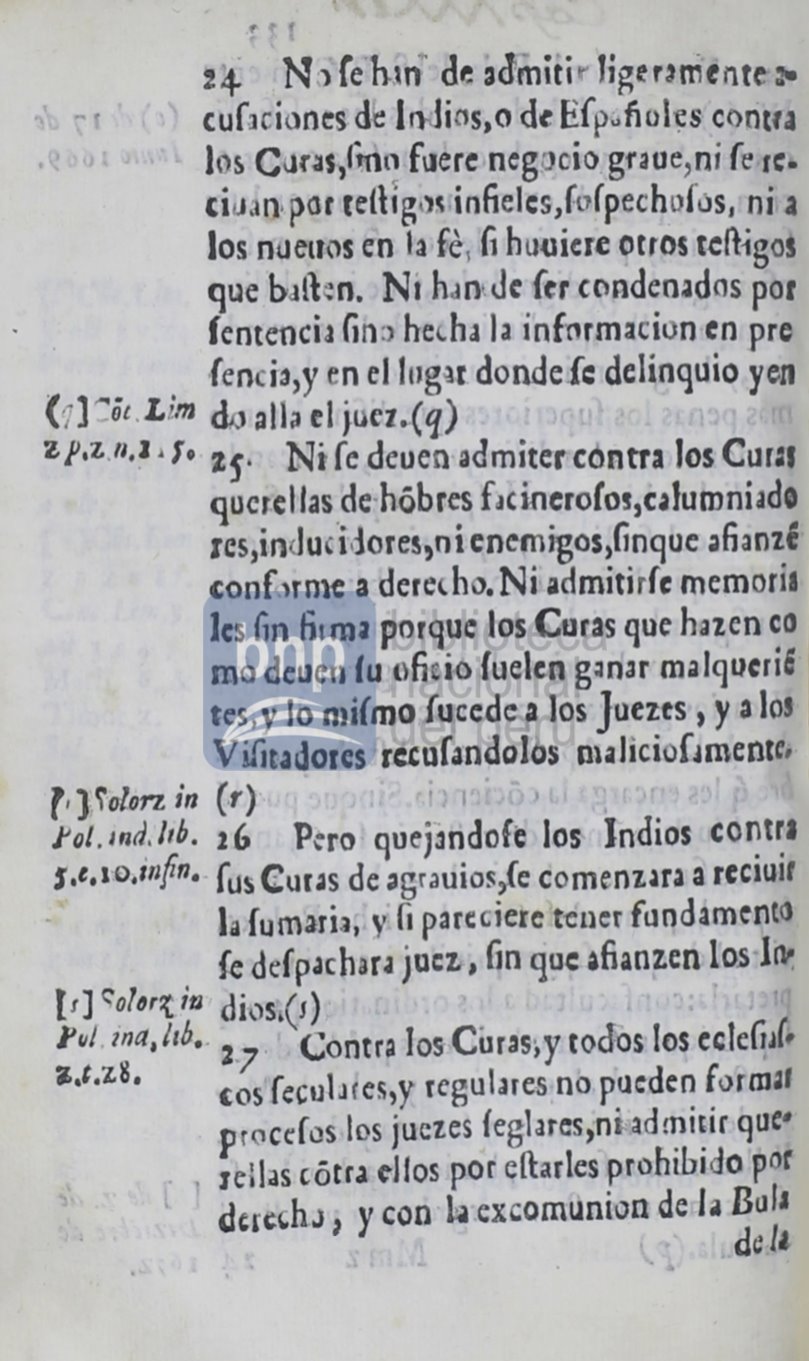 24 No se han de admitir ligeramente a-
cusaciones de Indios,o de Españoles contra
los Curas,sino fuere negocio graue,ni se re-
ciuan por testigos infieles,sospechosos, ni a
los nueuos en la fè, si huuiere otros testigos
que basten. Ni han de ser condenados por
sentencia sino hecha la informacion en pre
sencia,y en el lugar donde se delinquio yen
(q] Cõc. Lim
do alla el juez.(q)
2 p.2 n.1.5.
25. Ni se deuen admiter contra los Curas
querellas de hõbres facinerosos,calumniado
res,inducidores,ni enemigos,sinque afianzẽ
conforme a derecho. Ni admitirse memoria
les sin firma porque los Curas que hazen co
mo deuen su oficio suelen ganar malqueriẽ
tes,y lo mismo sucede a los Juezes , y a los
Visitadores recusandolos maliciosamente.
[r] Solorz in
(r)
Pol. ind. lib.
26 Pero quejandose los Indios contra
5.c.10.infin.
sus Curas de agrauios,se comenzara a reciuir
la sumaria, y si pareciere tener fundamento
se despachara juez , sin que afianzen los In-
[s] Solorz in
dios.(s)
Pol ind, lib.
27 Contra los Curas,y todos los eclesias-
2.c.28.
cos seculares,y regulares no pueden formar
procesos los juezes seglares,ni admitir que-
rellas cõtra ellos por estarles prohibido por
derecho , y con la excomunion de la Bula
de la
bnp
biblioteca
nacional
del perú